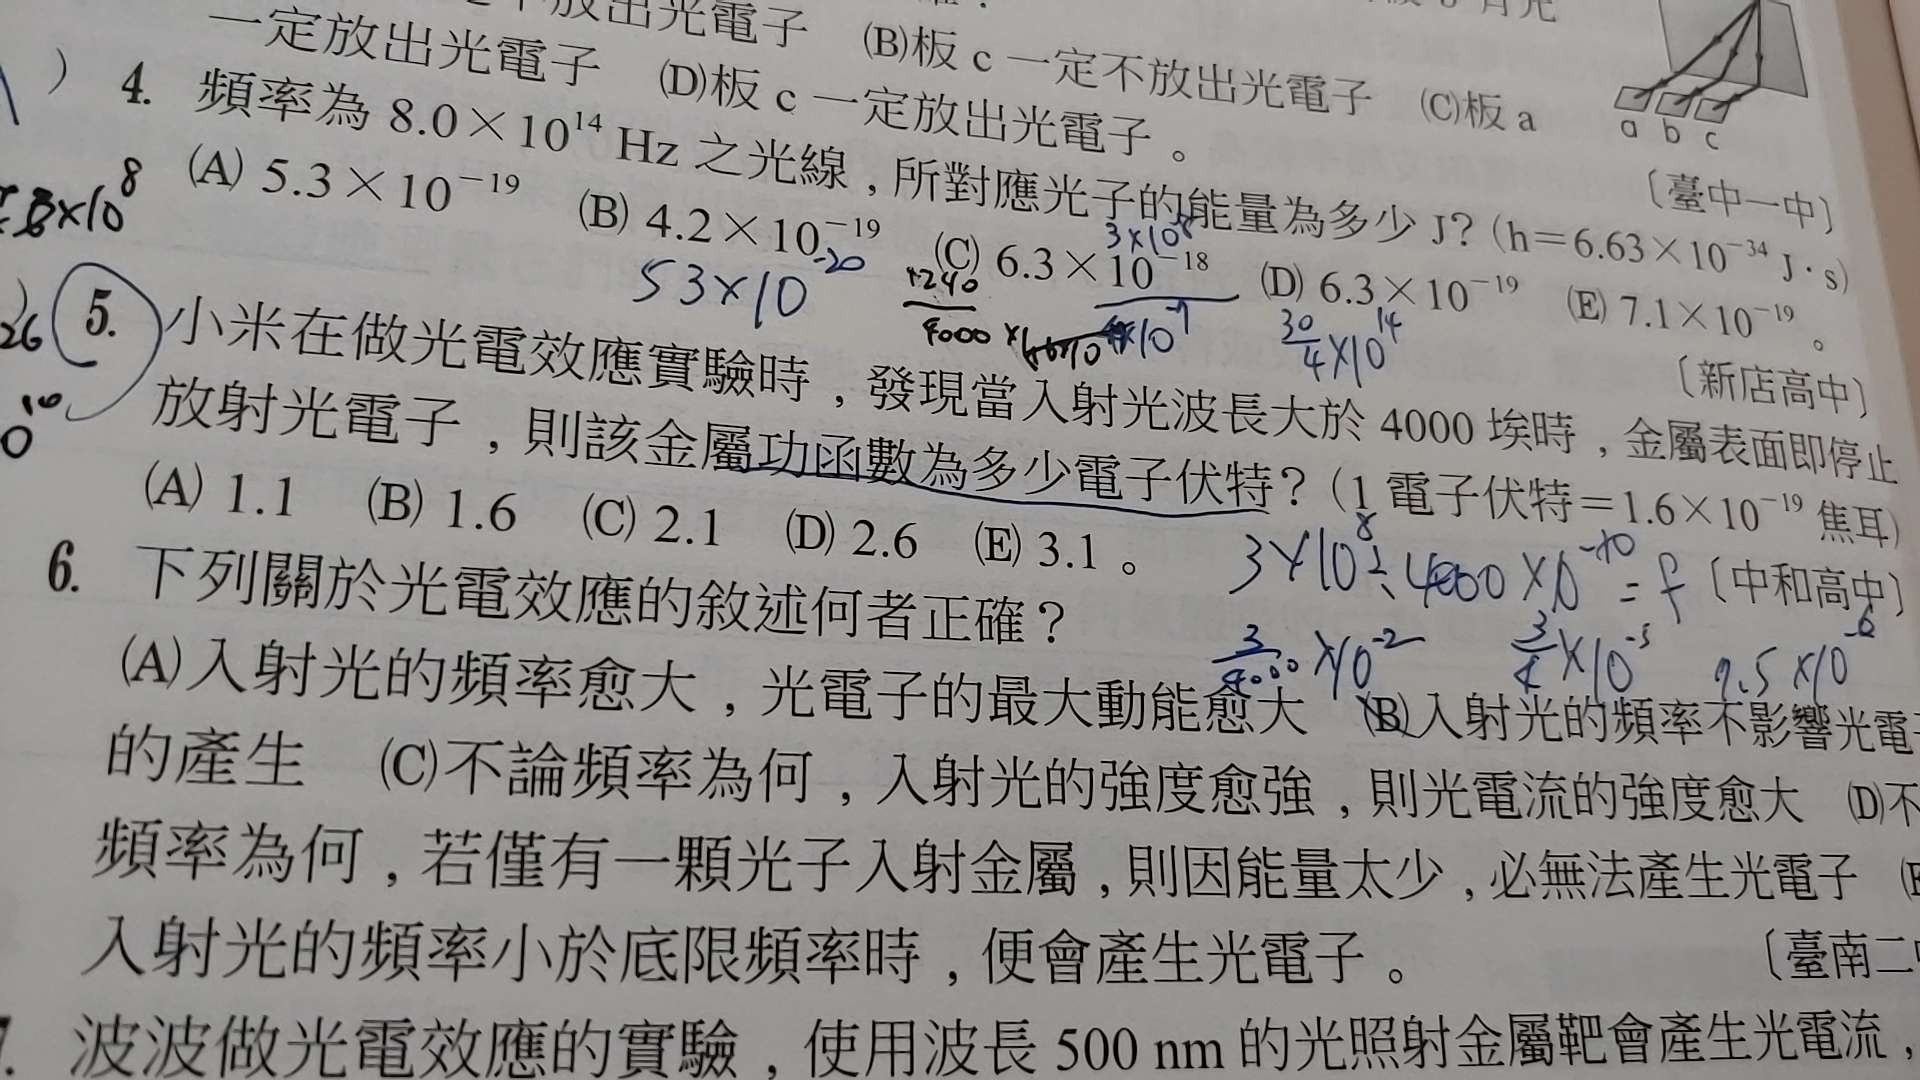 放出光電子 (B)板 c 一定不放出光電子 (C)板 a
一定放出光電子 (D)板 c 一定放出光電子。
〔臺中一中〕
a b c
) 4. 頻率為 8.0×10¹⁴ Hz 之光線，所對應光子的能量為多少 J？(h＝6.63×10⁻³⁴ J·s)
(A) 5.3×10⁻¹⁹ (B) 4.2×10⁻¹⁹ (C) 6.3×10⁻¹⁸ (D) 6.3×10⁻¹⁹ (E) 7.1×10⁻¹⁹。
〔新店高中〕
53×10⁻²⁰
3×10⁸
4000
30/4×10¹⁴
) 5. 小米在做光電效應實驗時，發現當入射光波長大於 4000 埃時，金屬表面即停止
放射光電子，則該金屬功函數為多少電子伏特？(1 電子伏特＝1.6×10⁻¹⁹ 焦耳)
(A) 1.1 (B) 1.6 (C) 2.1 (D) 2.6 (E) 3.1。
〔中和高中〕
3×10⁸÷4000×10⁻¹⁰＝f
3/4000×10⁻² 3/4×10⁻⁵
6. 下列關於光電效應的敘述何者正確？
(A)入射光的頻率愈大，光電子的最大動能愈大 (B)入射光的頻率不影響光電
的產生 (C)不論頻率為何，入射光的強度愈強，則光電流的強度愈大 (D)不
頻率為何，若僅有一顆光子入射金屬，則因能量太少，必無法產生光電子
入射光的頻率小於底限頻率時，便會產生光電子。
〔臺南二
波波做光電效應的實驗，使用波長 500 nm 的光照射金屬靶會產生光電流，